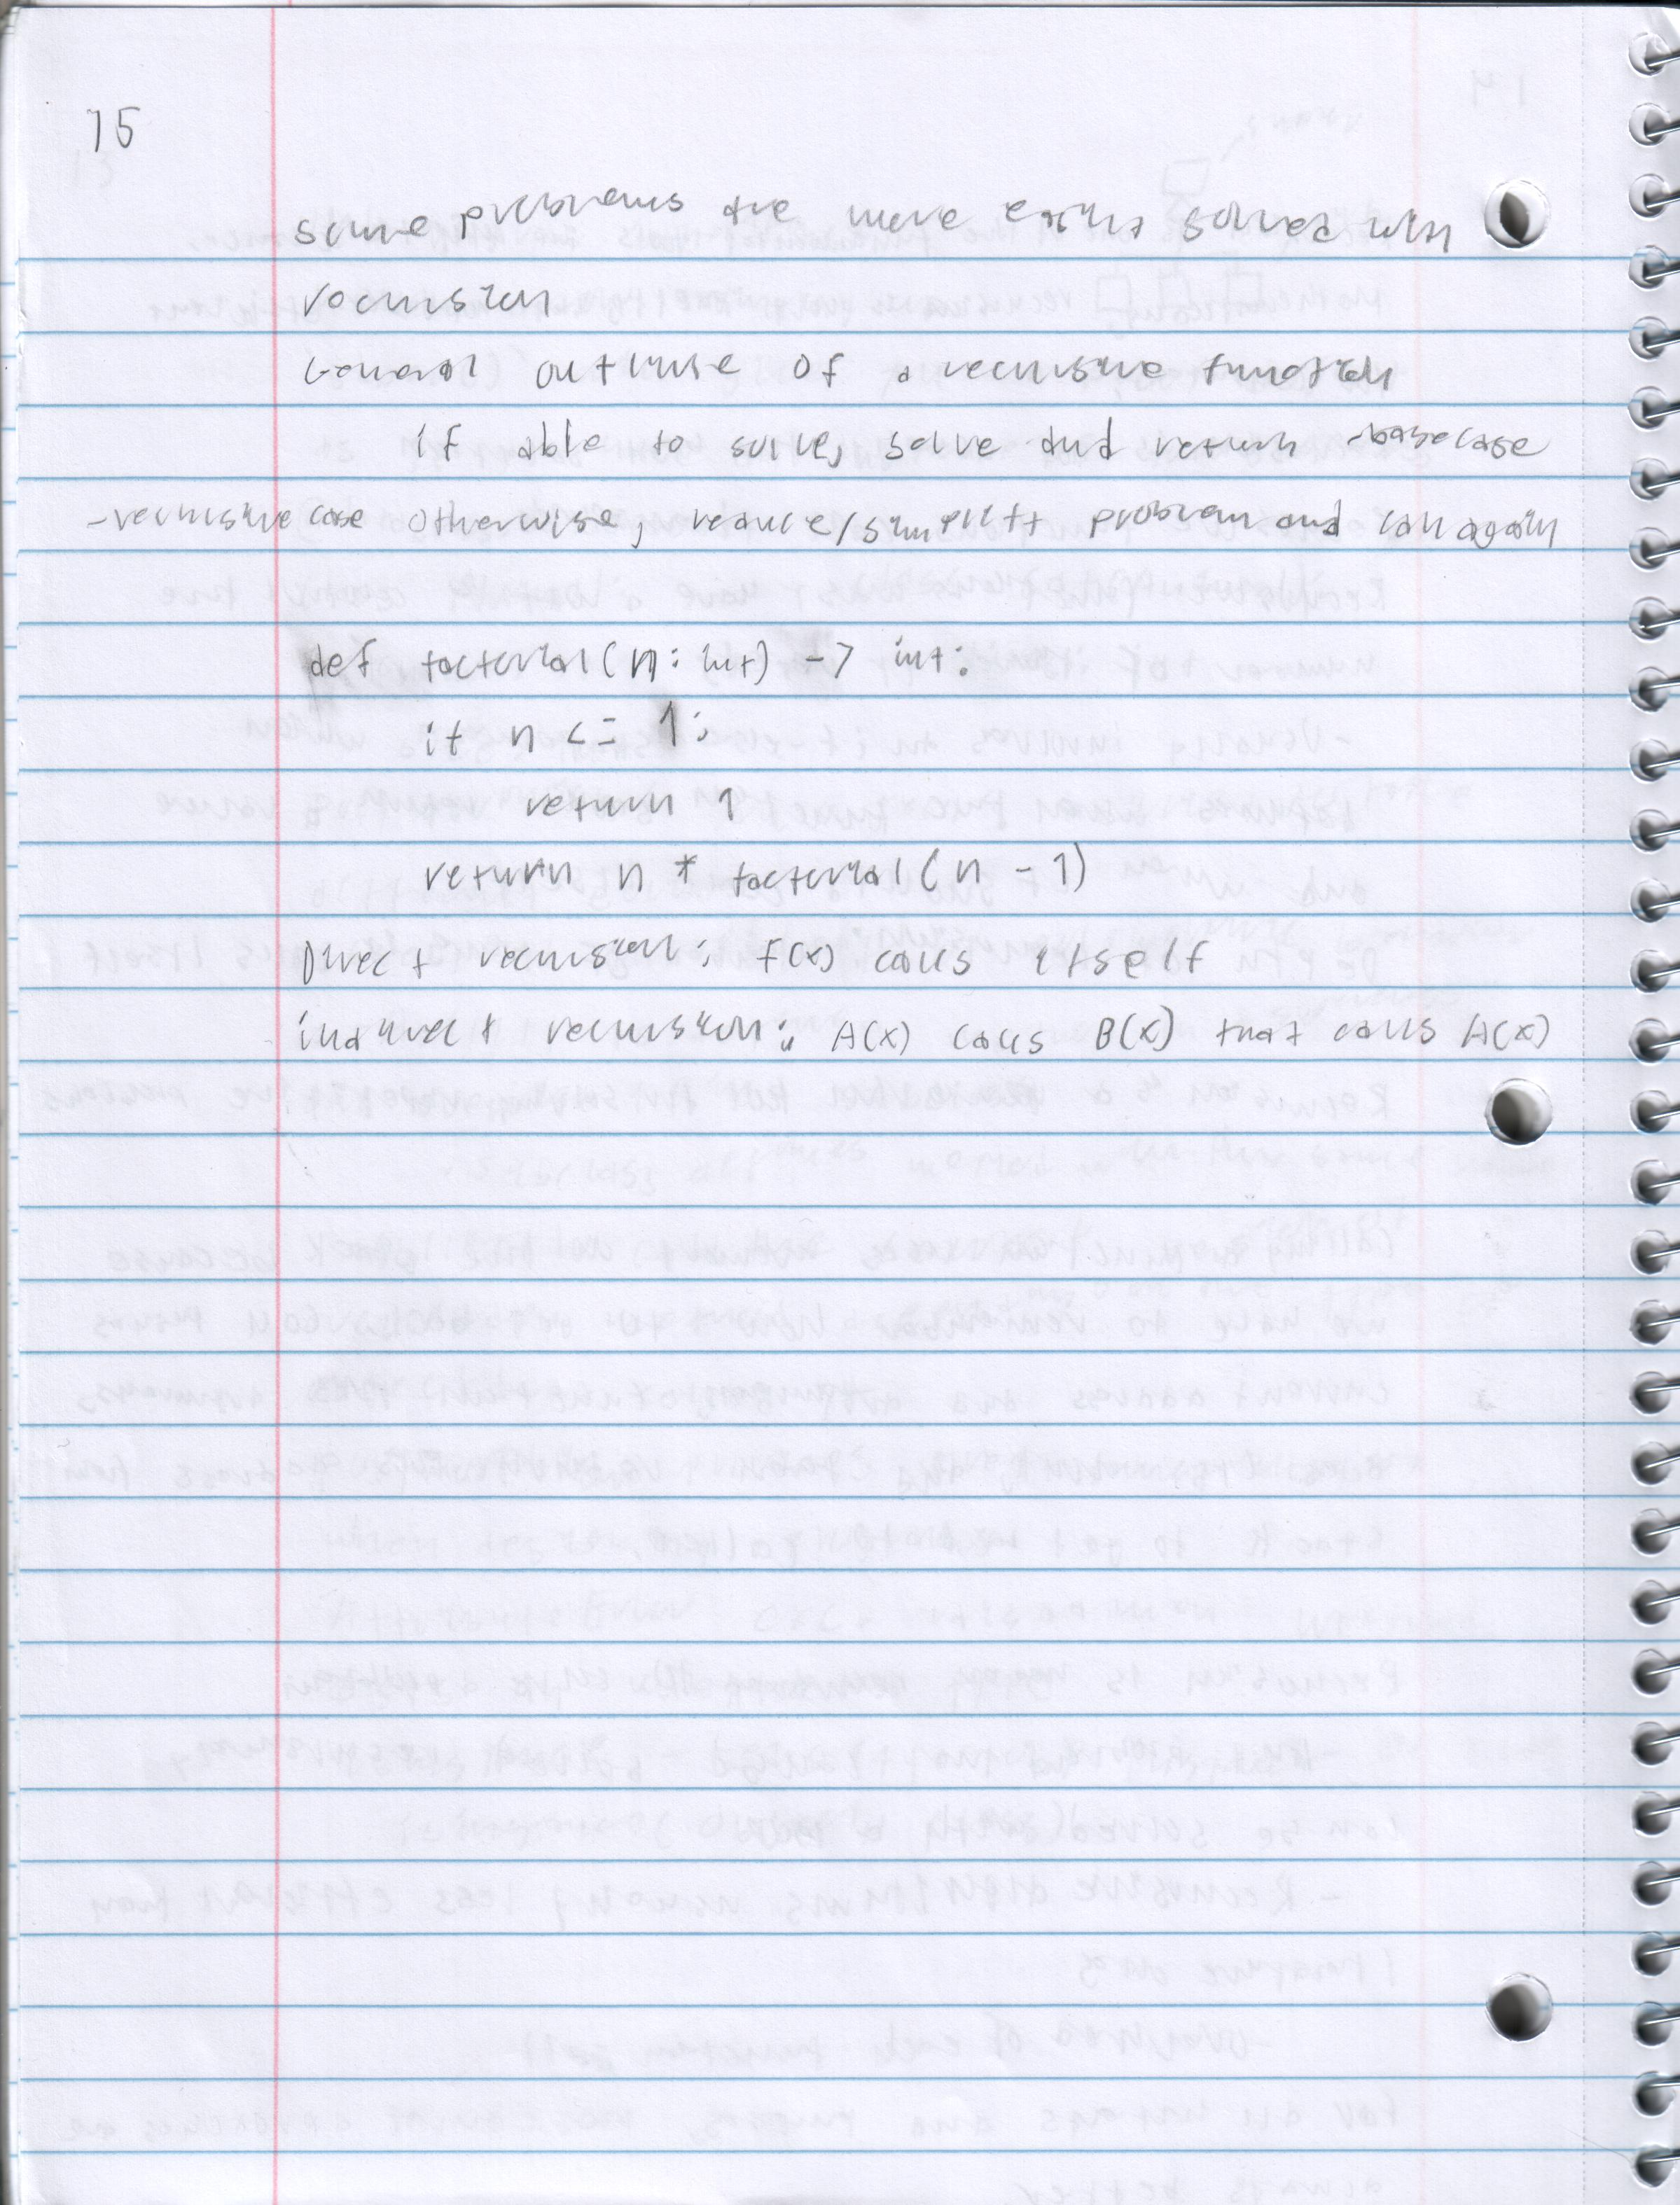 15
some problems are more easily solved with
recursion
General outline of a recursive function
if able to solve, solve and return -base case
-recursive case otherwise, reduce/simplify problem and call again
def factorial(n: int) -> int:
if n <= 1:
return 1
return n * factorial(n - 1)
Direct recursion: f(x) calls itself
indirect recursion: A(x) calls B(x) that calls A(x)